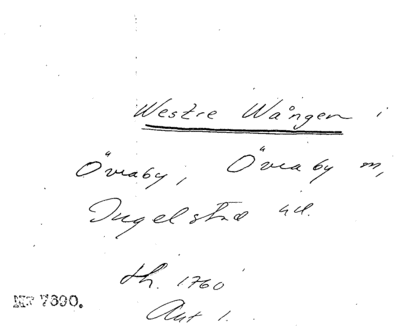 Westre Wången i
Övraby, Övraby sn,
Ingelstad hd.
th. 1760
Akt 1.
NR 7690.